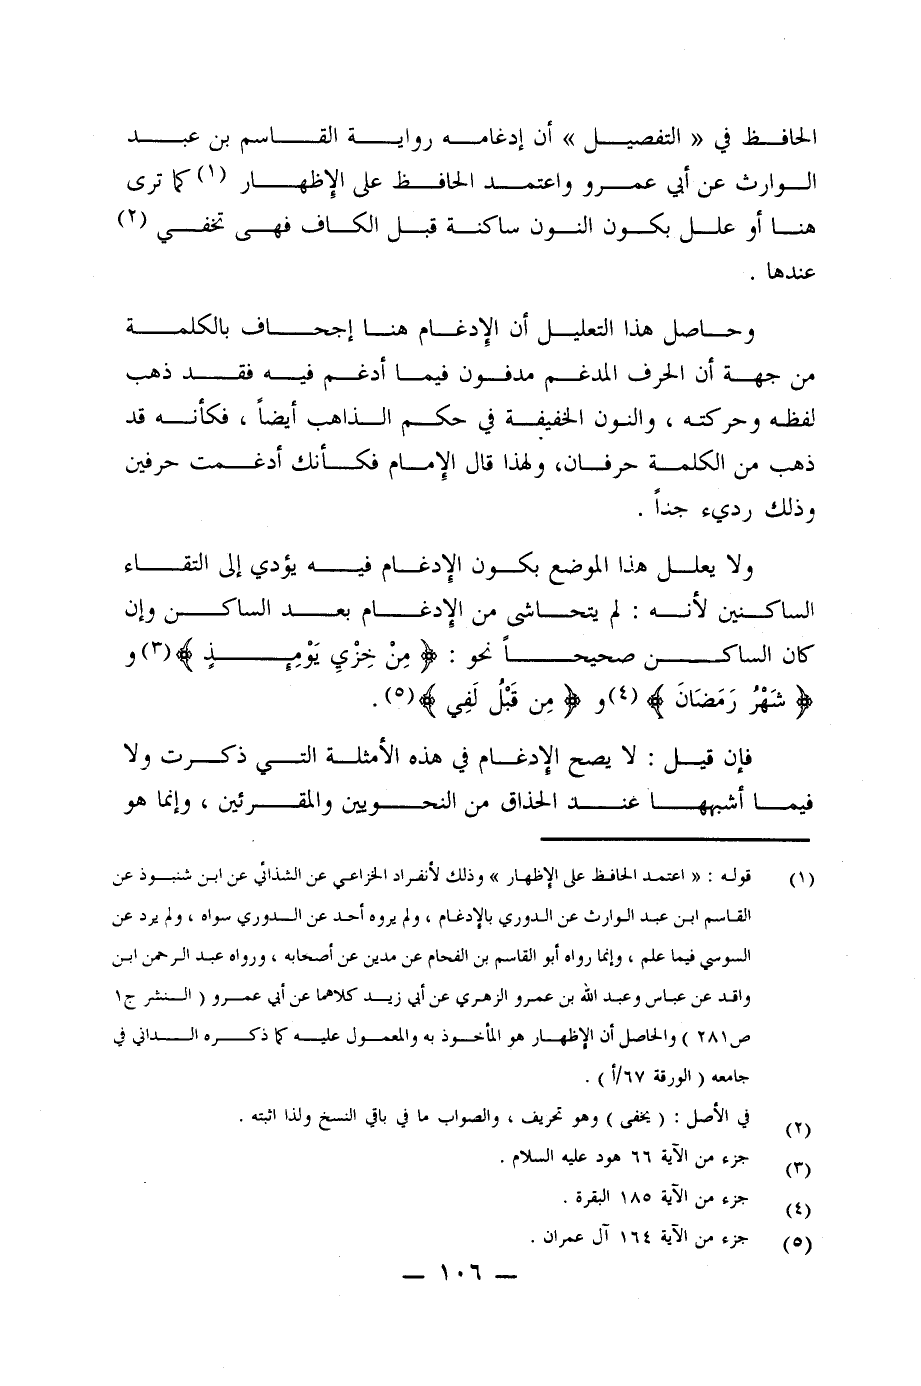 الحافظ في « التفصيل » أن إدغامه رواية القاسم بن عبد
الوارث عن أبي عمرو واعتمد الحافظ على الإظهار (١) كما ترى
هنا أو علل بكون النون ساكنة قبل الكاف فهي تخفي (٢)
عندها .
وحاصل هذا التعليل أن الإدغام هنا إجحاف بالكلمة
من جهة أن الحرف المدغم مدفون فيما أدغم فيه فقد ذهب
لفظه وحركته ، والنون الخفيفة في حكم الذاهب أيضاً ، فكأنه قد
ذهب من الكلمة حرفان، ولهذا قال الإمام فكأنك أدغمت حرفين
وذلك رديء جداً .
ولا يعلل هذا الموضع بكون الإدغام فيه يؤدي إلى التقاء
الساكنين لأنه : لم يتحاشى من الإدغام بعد الساكن وإن
كان الساكن صحيحاً نحو : ﴿ مِنْ خِزْيِ يَوْمِئِذٍ ﴾(٣) و
﴿ شَهْرُ رَمَضَانَ ﴾ (٤)و ﴿ مِن قَبْلُ لَفِي ﴾(٥).
فإن قيل : لا يصح الإدغام في هذه الأمثلة التي ذكرت ولا
فيما أشبهها عند الحذاق من النحويين والمقرئين ، وإنما هو
(١) قوله : « اعتمد الحافظ على الإظهار » وذلك لأنفراد الخزاعي عن الشذائي عن ابن شنبوذ عن
القاسم ابن عبد الوارث عن الدوري بالإدغام ، ولم يروه أحد عن الدوري سواه ، ولم يرد عن
السوسي فيما علم ، وإنما رواه أبو القاسم بن الفحام عن مدين عن أصحابه ، ورواه عبد الرحمن ابن
واقد عن عباس وعبد الله بن عمرو الزهري عن أبي زيد كلاهما عن أبي عمرو ( النشر ج١
ص٢٨١ ) والحاصل أن الإظهار هو المأخوذ به والمعمول عليه كما ذكره الداني في
جامعه ( الورقة ٦٧/أ ) .
(٢) في الأصل : ( يخفى ) وهو تحريف ، والصواب ما في باقي النسخ ولذا اثبته .
(٣) جزء من الآية ٦٦ هود عليه السلام .
(٤) جزء من الآية ١٨٥ البقرة .
(٥) جزء من الآية ١٦٤ آل عمران .
— ١٠٦ —